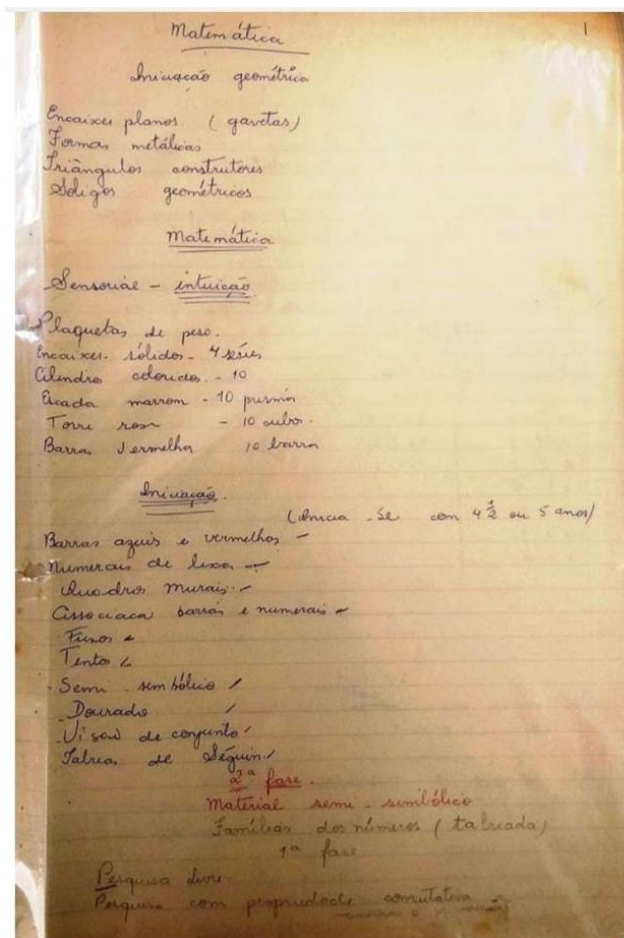 1
Matemática
Iniciação geométrica
Encaixes planos. (gavetas)
Formas metálicas
Triângulos construtores
Sóligos geométricos
Matemática
Sensorial - intuição
Plaquetas de peso.
Encaixes sólidos - 4 séries
Cilindro coloridos - 10
Escada marrom - 10 prismas
Torre rosa - 10 cubos.
Barras Vermelha 10 barras
Iniciação.
(Inicia-se com 4 1/2 ou 5 anos)
Barras azuis e vermelhas -
Numerais de lixa -
Quadros murais -
Associaca barras e numerais -
Fusos
Tentos
Semi-simbólico /
Dourado /
Visão de conjunto /
Tabuas de Séguin /
2ª fase.
Material semi-simbólico
Famílias dos números (tabuada)
1ª fase
Pesquisa livre.
Pesquisa com propriedade comutativa